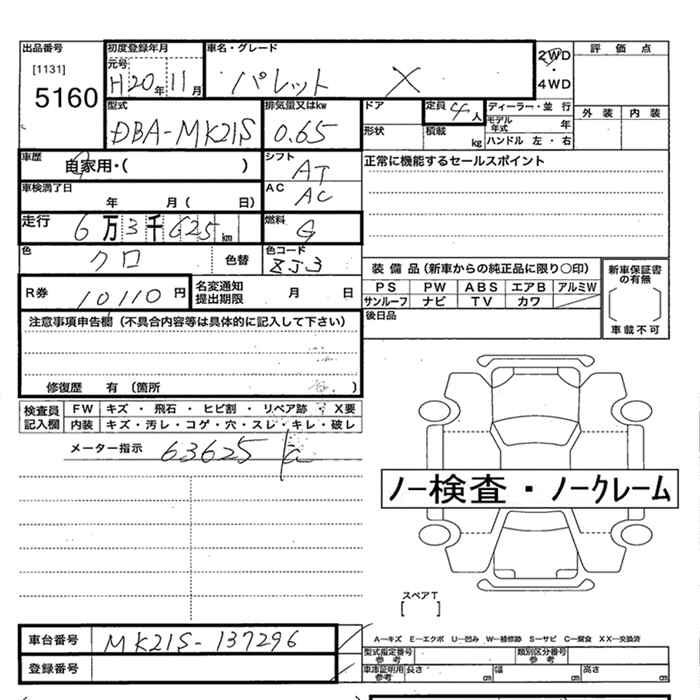 出品番号
[1131]
5160
初度登録年月
元号
H20年11月
車名・グレード
パレット X
2WD
・
4WD
評価点
外装 内装
型式
DBA-MK21S
排気量又はkw
0.65
ドア
形状
定員 4人
積載 kg
ディーラー・並行
モデル年式 年
ハンドル 左・右
車歴
自家用・( )
シフト
AT
正常に機能するセールスポイント
車検満了日
年 月( 日)
AC
AC
走行
6万3千625km
燃料
G
色
クロ
色替
色コード
ZJ3
装備品(新車からの純正品に限り○印)
PS PW ABS エアB アルミW
サンルーフ ナビ TV カワ
新車保証書
の有無
[ ]
車載不可
R券
10110円
名変通知
提出期限
月 日
後日品
注意事項申告欄(不具合内容等は具体的に記入して下さい)
修復歴 有(箇所 )
検査員
記入欄
FW キズ・飛石・ヒビ割・リペア跡・X要
内装 キズ・汚レ・コゲ・穴・スレ・キレ・破レ
メーター指示 63625
ノー検査・ノークレーム
スペアT
[ ]
車台番号 MK21S-137296
登録番号
A―キズ E―エクボ U―凹み W―補修跡 S―サビ C―腐食 XX―交換済
型式指定番号
参考
類別区分番号
参考
車庫証明用
参考
長さ cm 幅 cm 高さ cm